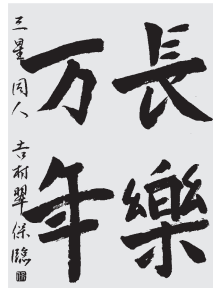 長樂
万年
三星同人 吉村翠保臨